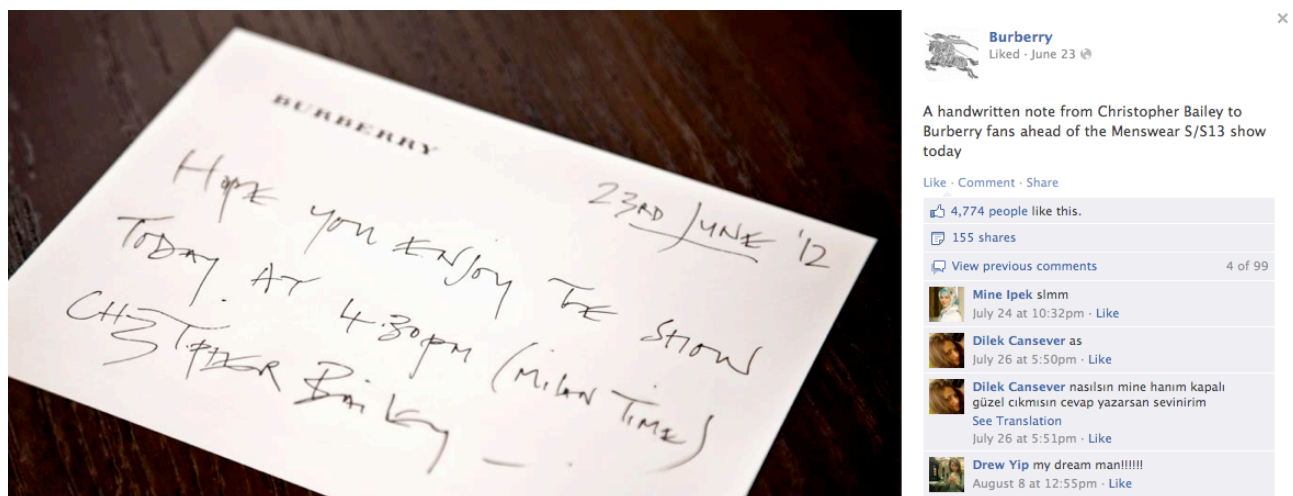 BURBERRY
23RD JUNE '12
HOPE YOU ENJOY THE SHOW
TODAY AT 4.30PM (MILAN TIME)
CHRISTOPHER BAILEY
Burberry
Liked · June 23
A handwritten note from Christopher Bailey to
Burberry fans ahead of the Menswear S/S13 show
today
Like · Comment · Share
4,774 people like this.
155 shares
View previous comments 4 of 99
Mine Ipek slmm
July 24 at 10:32pm · Like
Dilek Cansever as
July 26 at 5:50pm · Like
Dilek Cansever nasılsın mine hanım kapalı
güzel cıkmısın cevap yazarsan sevinirim
See Translation
July 26 at 5:51pm · Like
Drew Yip my dream man!!!!!!
August 8 at 12:55pm · Like